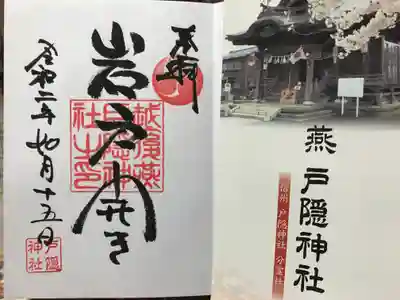 奉拝
岩戸開き
越後燕
戸隠神
社之印
令和二年如月十五日
戸隠
神社
燕 戸隠神社
信州 戸隠神社 分霊社